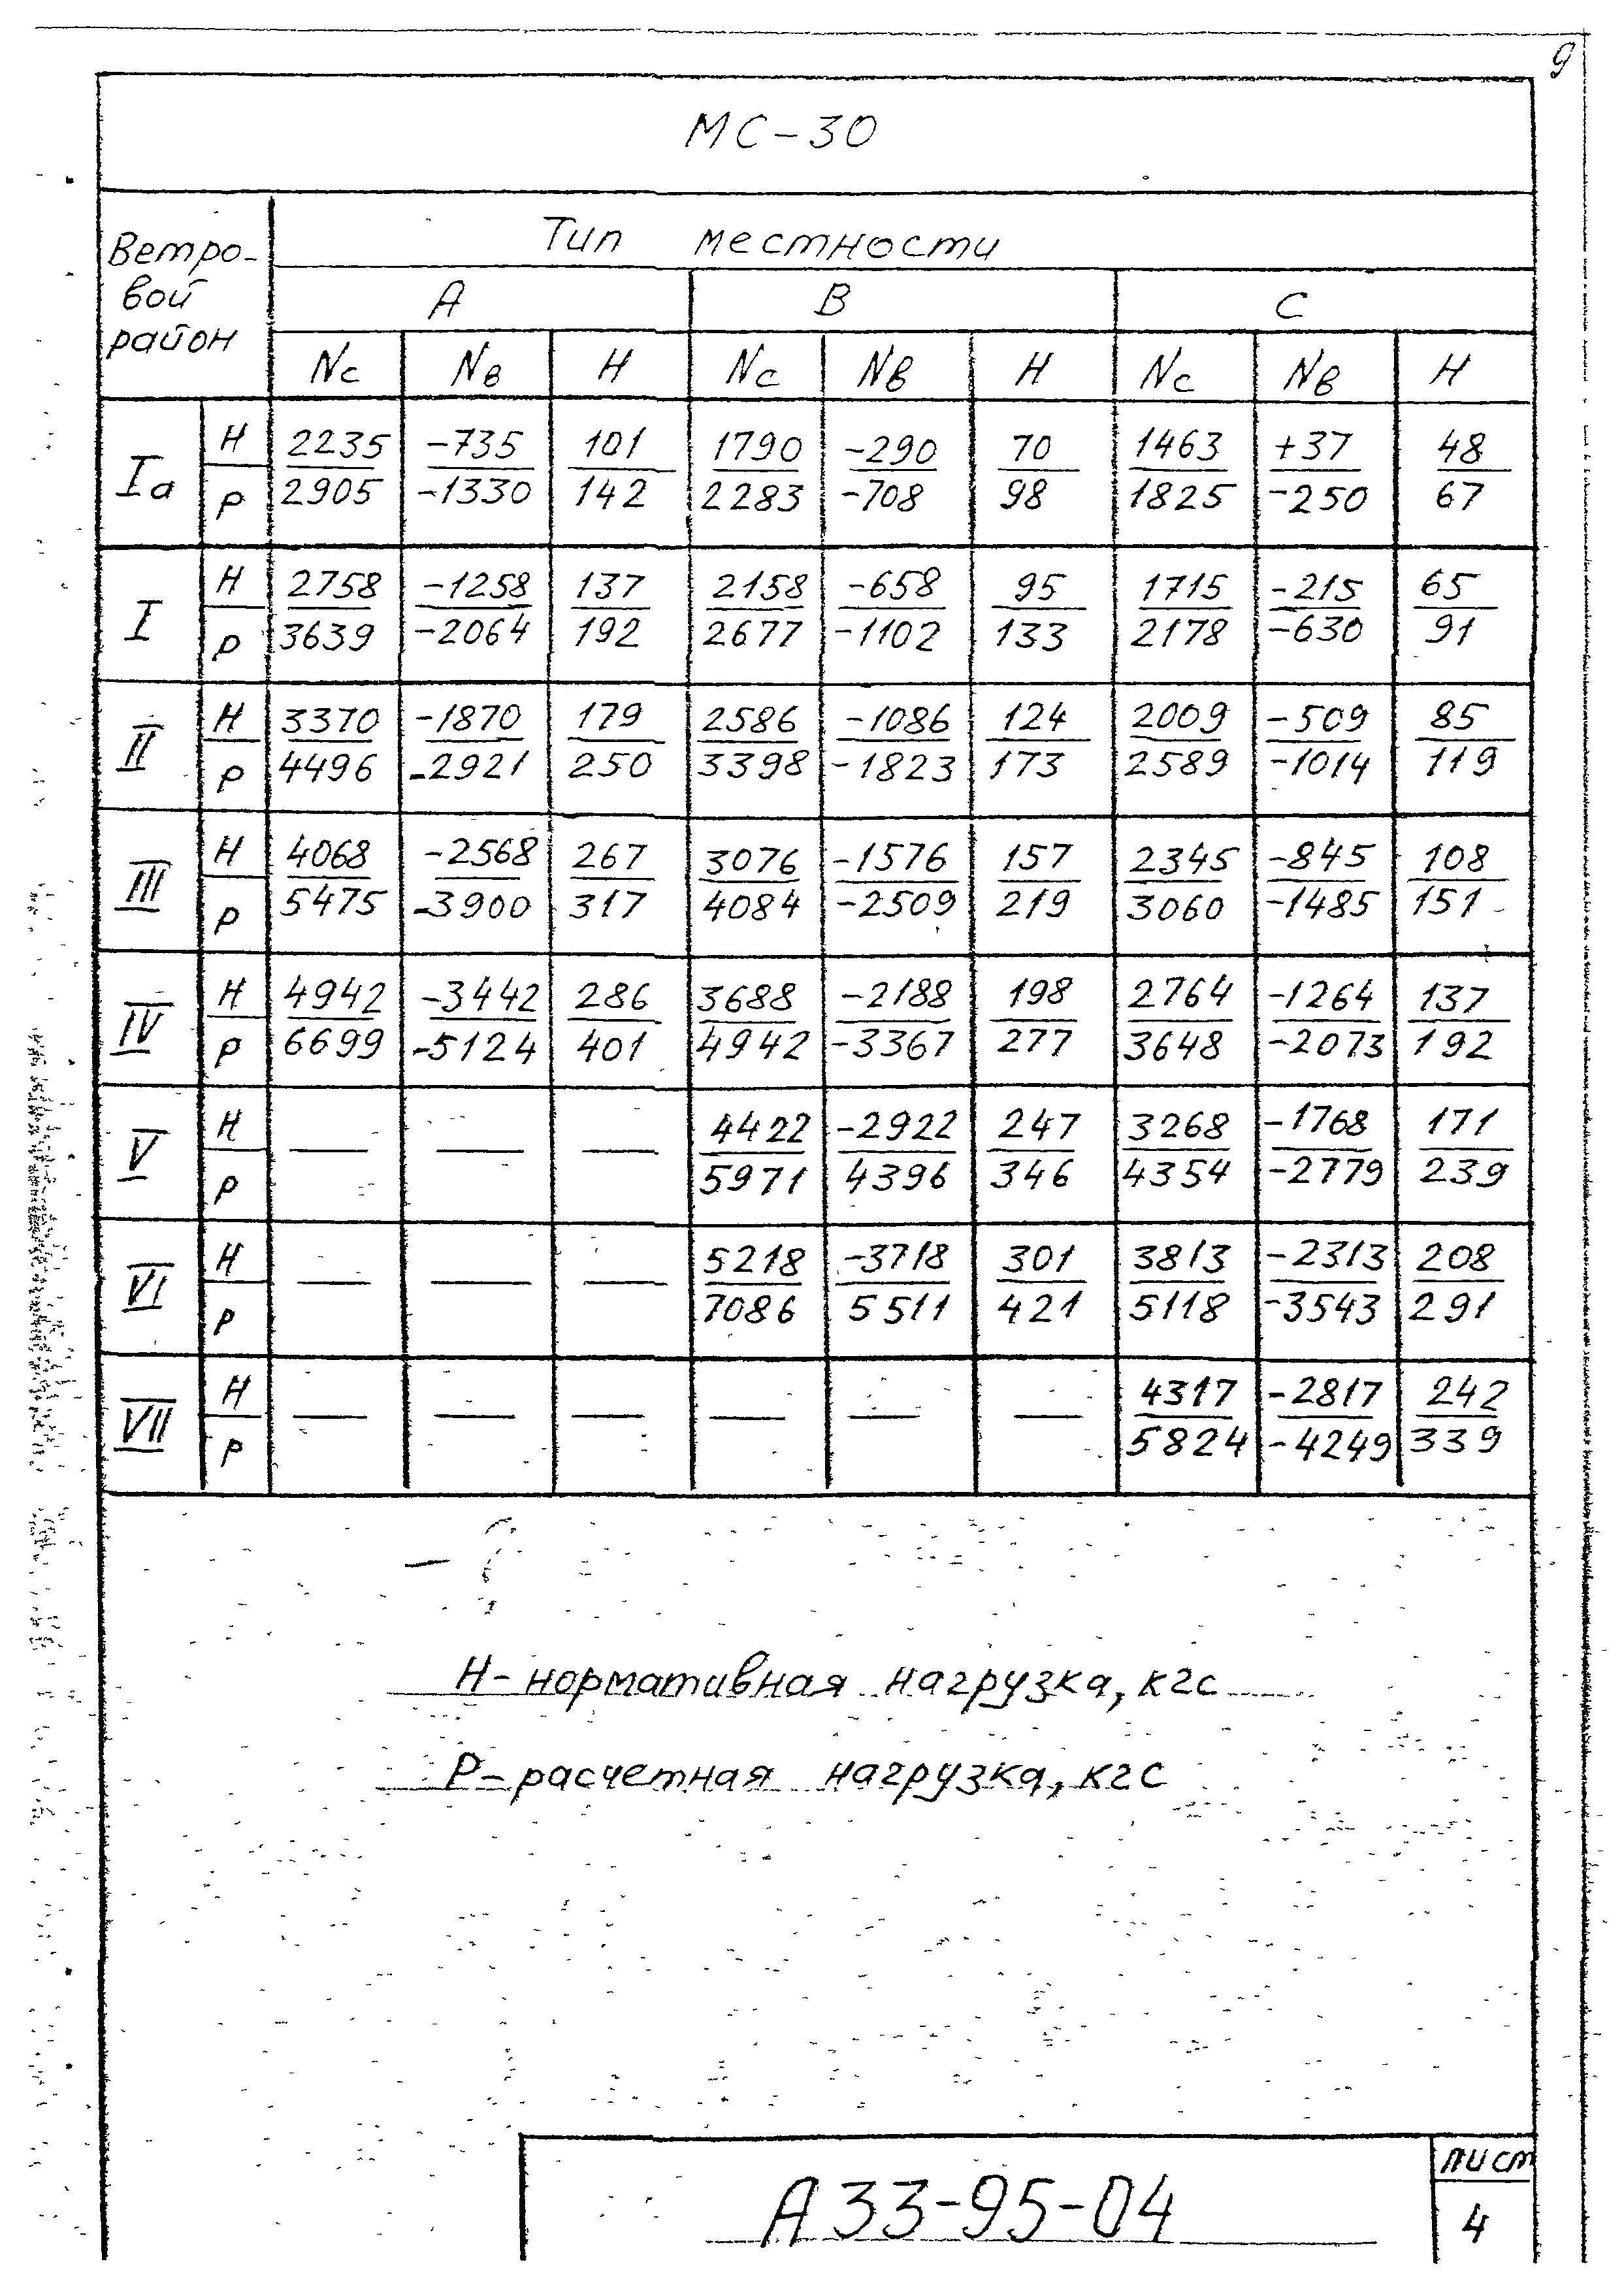 9
МС-30
Ветро-
вой
район
Тип местности
А В С
Nс Nв Н Nс Nв Н Nс Nв Н
Iа Н 2235 -735 101 1790 -290 70 1463 +37 48
Р 2905 -1330 142 2283 -708 98 1825 -250 67
I Н 2758 -1258 137 2158 -658 95 1715 -215 65
Р 3639 -2064 192 2677 -1102 133 2178 -630 91
II Н 3370 -1870 179 2586 -1086 124 2009 -509 85
Р 4496 -2921 250 3398 -1823 173 2589 -1014 119
III Н 4068 -2568 267 3076 -1576 157 2345 -845 108
Р 5475 -3900 317 4084 -2509 219 3060 -1485 151
IV Н 4942 -3442 286 3688 -2188 198 2764 -1264 137
Р 6699 -5124 401 4942 -3367 277 3648 -2073 192
V Н — — — 4422 -2922 247 3268 -1768 171
Р 5971 4396 346 4354 -2779 239
VI Н — — — 5218 -3718 301 3813 -2313 208
Р 7086 5511 421 5118 -3543 291
VII Н — — — — — — 4317 -2817 242
Р 5824 -4249 339
Н-нормативная нагрузка, кгс
Р-расчетная нагрузка, кгс
А33-95-04
лист
4